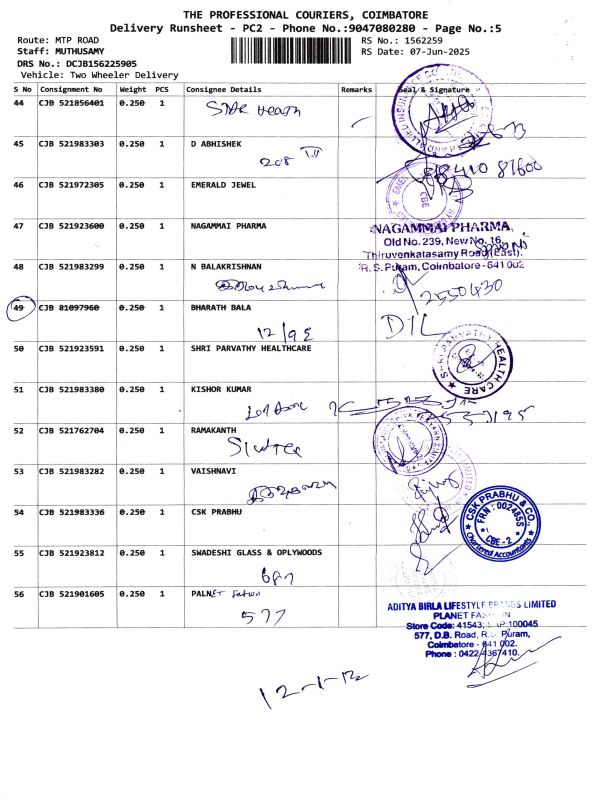 THE PROFESSIONAL COURIERS, COIMBATORE
Delivery Runsheet - PC2 - Phone No.:9047080280 - Page No.:5
Route: MTP ROAD
RS No.: 1562259
Staff: MUTHUSAMY
RS Date: 07-Jun-2025
DRS No.: DCJB156225905
Vehicle: Two Wheeler Delivery
S No Consignment No Weight PCS Consignee Details Remarks Seal & Signature
44 CJB 521856401 0.250 1 Star Heath
45 CJB 521983303 0.250 1 D ABHISHEK
208
46 CJB 521972305 0.250 1 EMERALD JEWEL
CBE
47 CJB 521923600 0.250 1 NAGAMMAI PHARMA
NAGAMMAI PHARMA,
Old No. 239, New No. 16,
Thiruvenkatasamy Road (East),
R.S. Puram, Coimbatore - 641 002
48 CJB 521983299 0.250 1 N BALAKRISHNAN
2550430
49 CJB 81097960 0.250 1 BHARATH BALA
12/95
D/L
50 CJB 521923591 0.250 1 SHRI PARVATHY HEALTHCARE
SHRI PARVATHY HEALTH CARE
51 CJB 521983380 0.250 1 KISHOR KUMAR
52 CJB 521762704 0.250 1 RAMAKANTH
53 CJB 521983282 0.250 1 VAISHNAVI
54 CJB 521983336 0.250 1 CSK PRABHU
CSK PRABHU & CO.,
FRN : 002485S
CBE - 2
Chartered Accountants
55 CJB 521923812 0.250 1 SWADESHI GLASS & OPLYWOODS
687
56 CJB 521901605 0.250 1 PALNET
577
ADITYA BIRLA LIFESTYLE BRANDS LIMITED
PLANET FASHION
Store Code: 41543, 100045
577, D.B. Road, R.S. Puram,
Coimbatore - 641 002.
Phone : 0422 4367410.
12-1-12